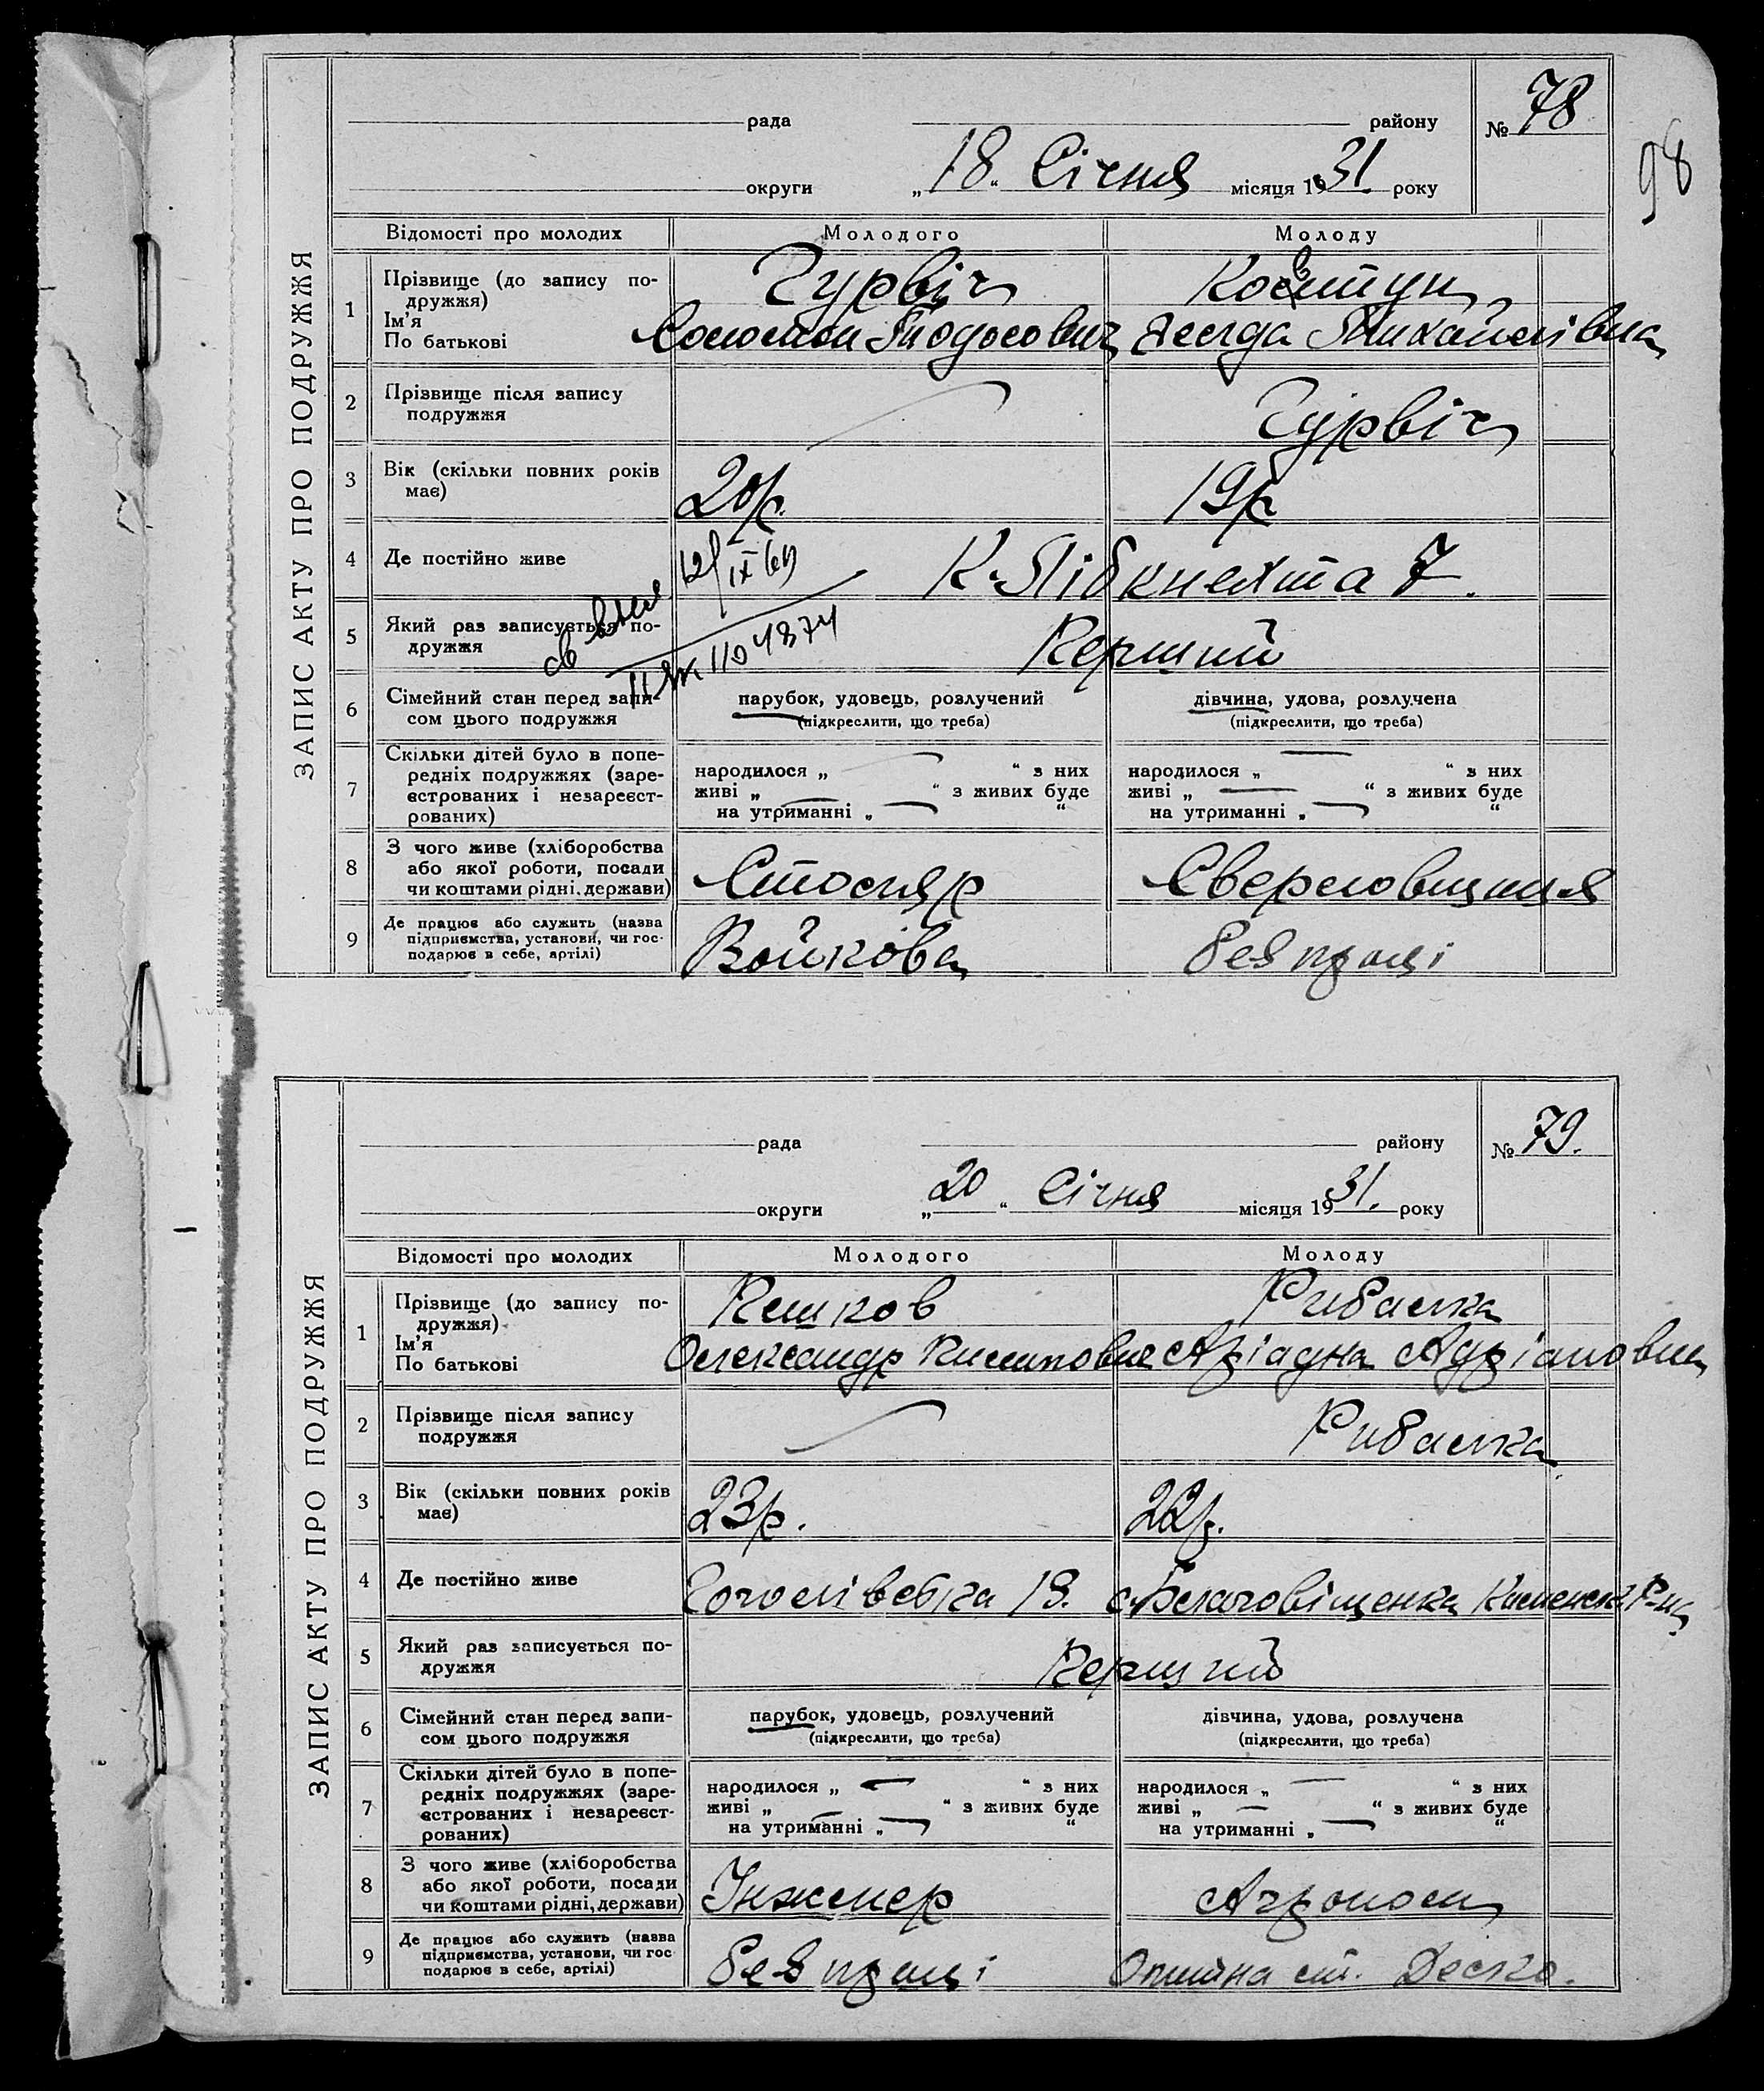 98
ЗАПИС АКТУ ПРО ПОДРУЖЖЯ
рада району № 78
округи „18“ Січня місяця 1931 року
Відомості про молодих Молодого Молоду
1 Прізвище (до запису по-
дружжя)
Ім'я
По батькові
Гурвіч
Соломон Тодосович
Михайлівна
2 Прізвище після запису
подружжя
Гурвіч
3 Вік (скільки повних років
має)
20р. 19р
4 Де постійно живе
К. Лібкнехта 7.
12/IX 60
5 Який раз записується по-
дружжя
Перший
II 1104874
6 Сімейний стан перед запи-
сом цього подружжя
парубок, удовець, розлучений дівчина, удова, розлучена
(підкреслити, що треба) (підкреслити, що треба)
7 Скільки дітей було в попе-
редніх подружжях (заре-
єстрованих і незареєст-
рованих)
народилося „ — “ з них народилося „ — “ з них
живі „ — “ з живих буде живі „ — “ з живих буде
на утриманні „ — “ на утриманні „ — “
8 З чого живе (хліборобства
або якої роботи, посади
чи коштами рідні, держави)
Столяр Сверловщиця
9 Де працює або служить (назва
підприємства, установи, чи гос-
подарює в себе, артілі)
Войкова Без праці
ЗАПИС АКТУ ПРО ПОДРУЖЖЯ
рада району № 79.
округи „20“ Січня місяця 1931. року
Відомості про молодих Молодого Молоду
1 Прізвище (до запису по-
дружжя)
Ім'я
По батькові
Пешков Рибалка
Олександр Пилипович Аріадна Адріановна
2 Прізвище після запису
подружжя
Рибалка
3 Вік (скільки повних років
має)
23р. 22р.
4 Де постійно живе
Гоголівська 18. с. Благовіщенка Р-на
5 Який раз записується по-
дружжя
Перший
6 Сімейний стан перед запи-
сом цього подружжя
парубок, удовець, розлучений дівчина, удова, розлучена
(підкреслити, що треба) (підкреслити, що треба)
7 Скільки дітей було в попе-
редніх подружжях (заре-
єстрованих і незареєст-
рованих)
народилося „ — “ з них народилося „ — “ з них
живі „ — “ з живих буде живі „ — “ з живих буде
на утриманні „ — “ на утриманні „ — “
8 З чого живе (хліборобства
або якої роботи, посади
чи коштами рідні, держави)
Інженер Агроном
9 Де працює або служить (назва
підприємства, установи, чи гос
подарює в себе, артілі)
Без праці ст.